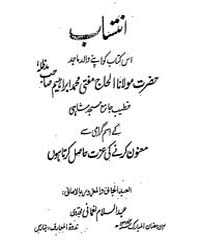 انتساب
اس کتاب کو اپنے والد ماجد
حضرت مولانا الحاج مفتی محمد ابراہیم صاحب مدظلہٗ
خطیب جامع مسجد شاہی
کے اسم گرامی سے
معنون کرنے کی عزت حاصل کرتا ہوں
العبد
عبد السلام نعمانی مجددی
رمضان المبارک